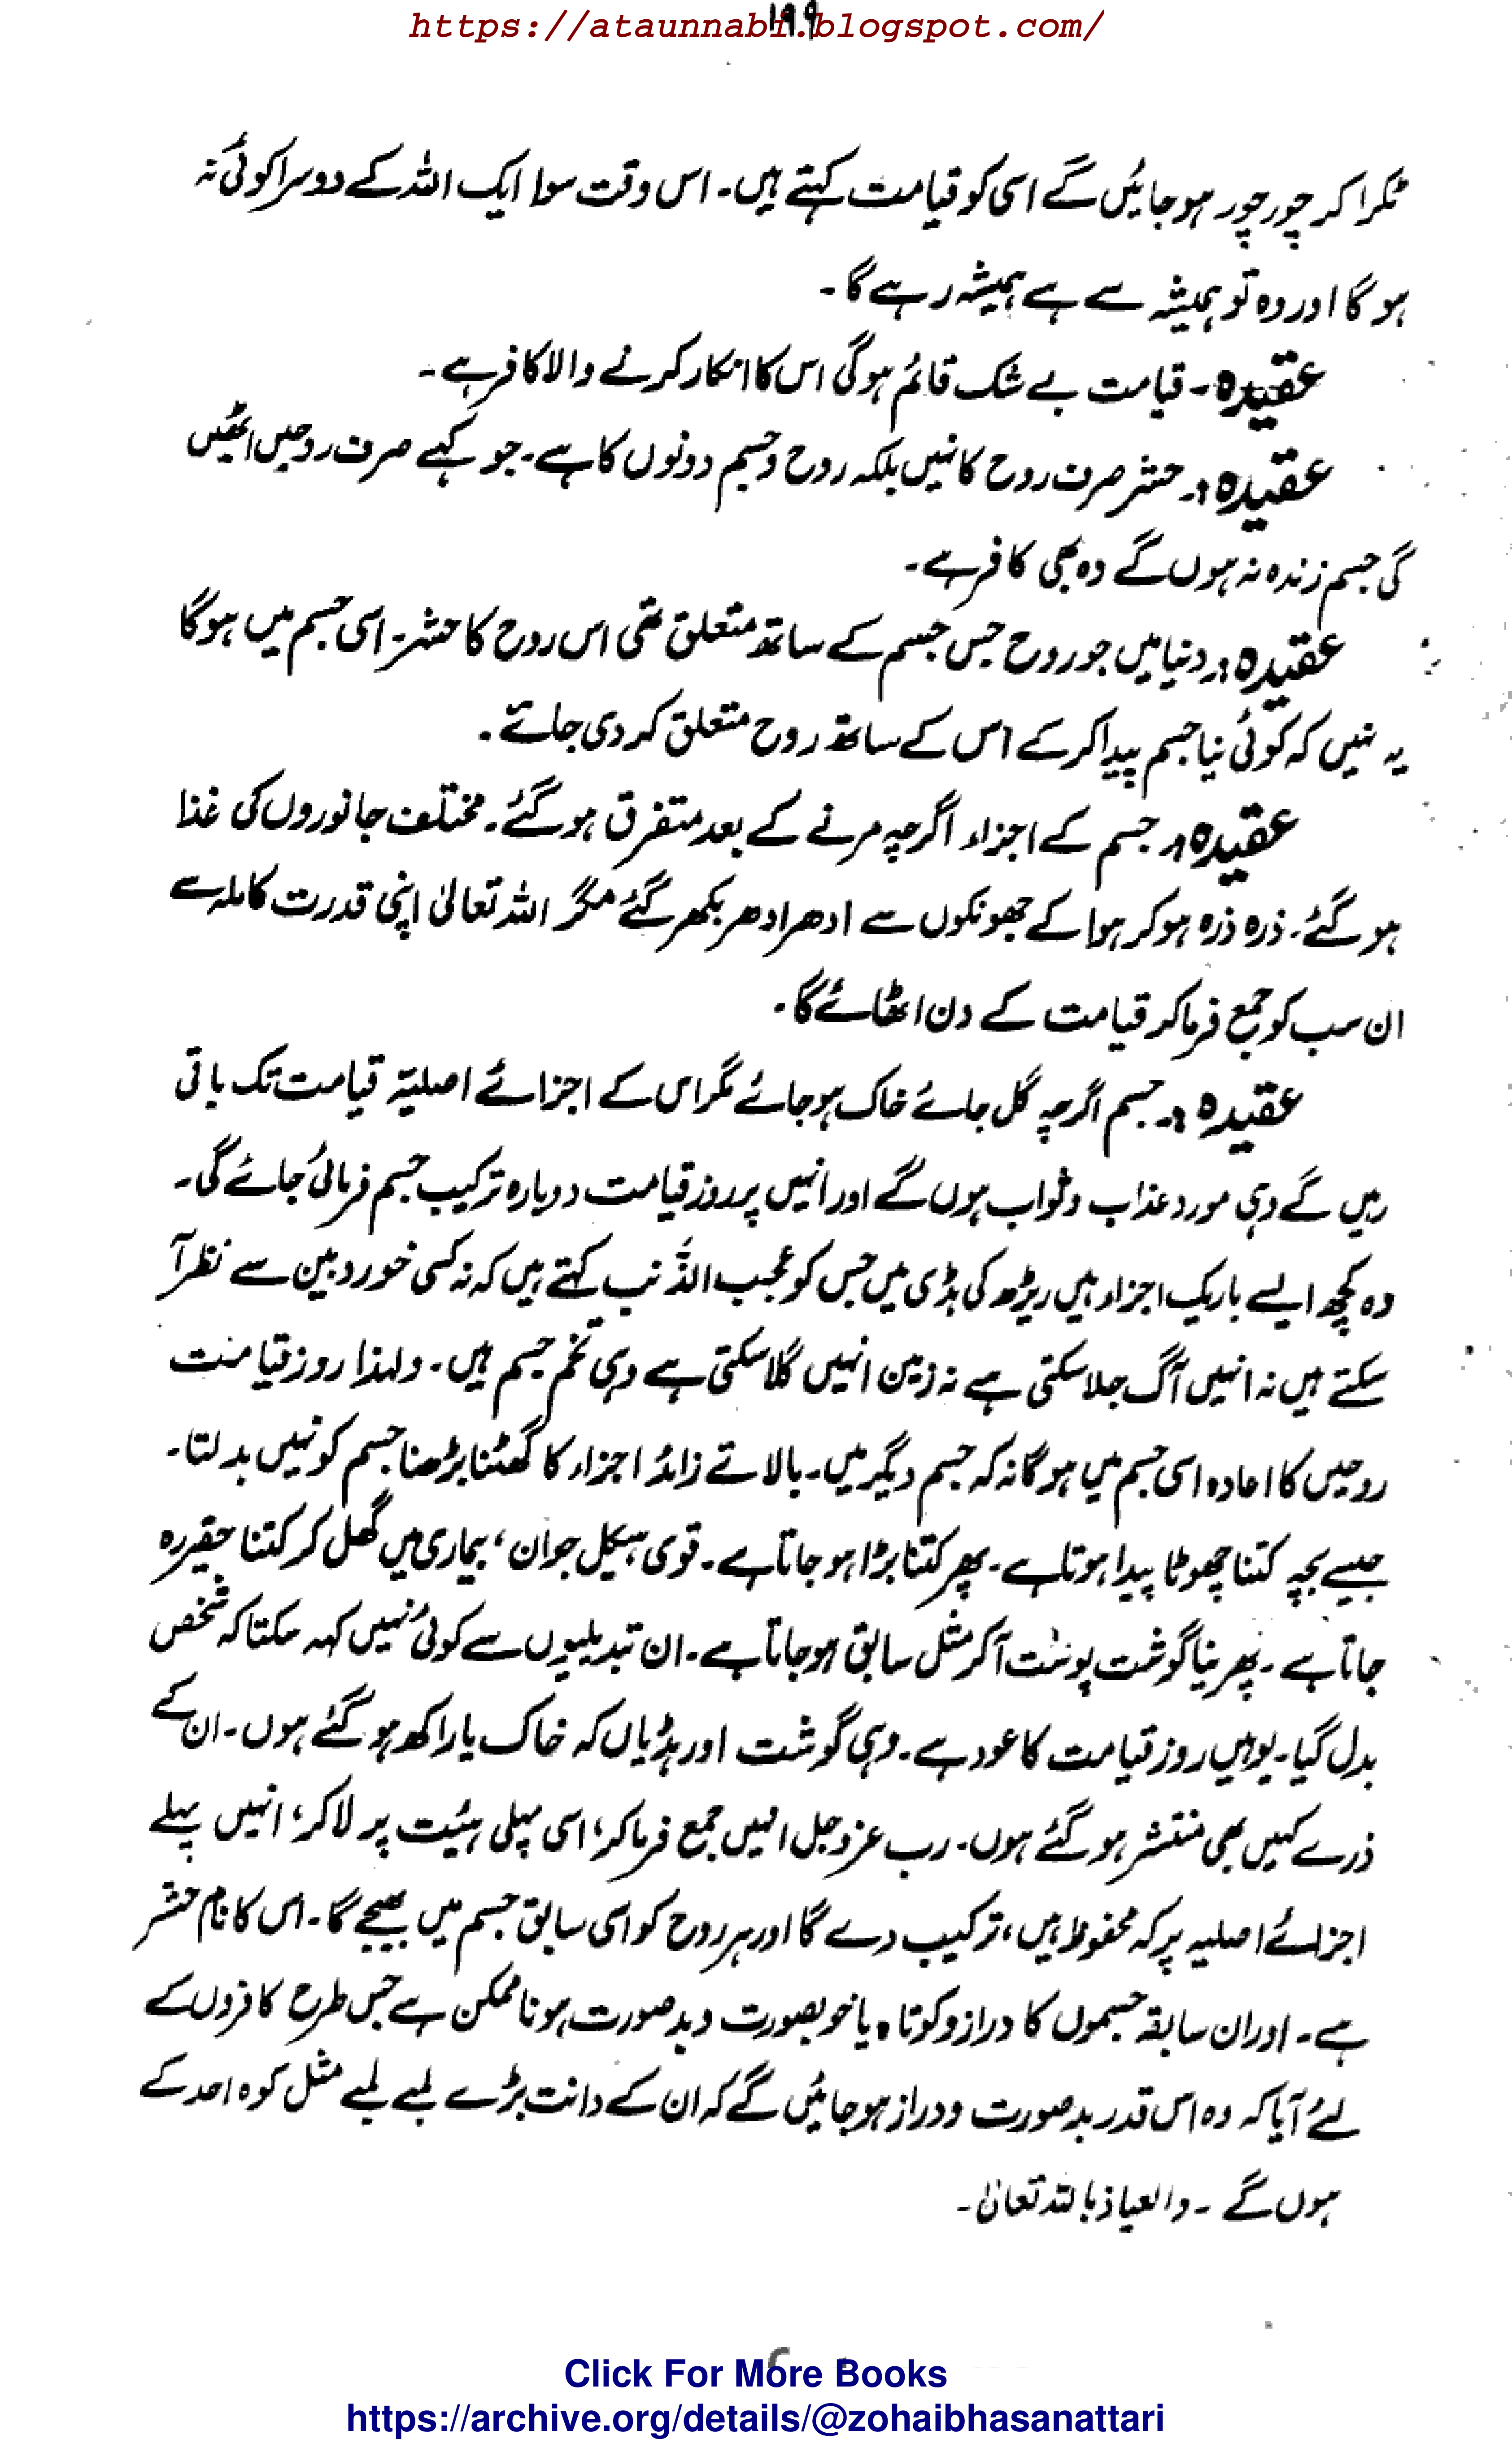 ۱۹۹
https://ataunnabi.blogspot.com/
ٹکرا کر چور چور ہو جائیں گے اسی کو قیامت کہتے ہیں۔ اس وقت سوا ایک اللہ کے دوسرا کوئی نہ
ہو گا اور وہ تو ہمیشہ سے ہے ہمیشہ رہے گا۔
عقیدہ۔ قیامت بے شک قائم ہو گی اس کا انکار کرنے والا کافر ہے۔
عقیدہ:۔ حشر صرف روح کا نہیں بلکہ روح و جسم دونوں کا ہے۔ جو کہے صرف روحیں اٹھیں
گی جسم زندہ نہ ہوں گے وہ بھی کافر ہے۔
عقیدہ:۔ دنیا میں جو روح جس جسم کے ساتھ متعلق تھی اس روح کا حشر اسی جسم میں ہو گا
یہ نہیں کہ کوئی نیا جسم پیدا کر کے اس کے ساتھ روح متعلق کر دی جائے۔
عقیدہ:۔ جسم کے اجزاء اگرچہ مرنے کے بعد متفرق ہو گئے۔ مختلف جانوروں کی غذا
ہو گئے۔ ذرہ ذرہ ہو کر ہوا کے جھونکوں سے ادھر ادھر بکھر گئے مگر اللہ تعالیٰ اپنی قدرت کاملہ سے
ان سب کو جمع فرما کر قیامت کے دن اٹھائے گا۔
عقیدہ:۔ جسم اگرچہ گل جائے خاک ہو جائے مگر اس کے اجزائے اصلیۃ قیامت تک باقی
رہیں گے وہی مورد عذاب و ثواب ہوں گے اور انہیں پر روز قیامت دوبارہ ترکیب جسم فرمائی جائے گی۔
وہ کچھ ایسے باریک اجزاء ہیں ریڑھ کی ہڈی میں جس کو عجب الذَّنب کہتے ہیں کہ نہ کسی خوردبین سے نظر آ
سکتے ہیں نہ انہیں آگ جلا سکتی ہے نہ زمین انہیں گلا سکتی ہے وہی تخم جسم ہیں۔ ولہذا روز قیامت
روحیں کا اعادہ اسی جسم میں ہو گا نہ کہ جسم دیگر میں۔ بالائے زائد اجزاء کا گھٹنا بڑھنا جسم کو نہیں بدلتا۔
جیسے بچہ کتنا چھوٹا پیدا ہوتا ہے۔ پھر کتنا بڑا ہو جاتا ہے۔ قوی ہیکل جوان، بیماری میں گھل کر کتنا حقیر رہ
جاتا ہے۔ پھر نیا گوشت پوست آ کر مثل سابق ہو جاتا ہے۔ ان تبدیلیوں سے کوئی نہیں کہہ سکتا کہ شخص
بدل گیا۔ یوہیں روز قیامت کا عود ہے۔ وہی گوشت اور ہڈیاں کہ خاک یا راکھ ہو گئے ہوں۔ ان کے
ذرے کہیں بھی منتشر ہو گئے ہوں۔ رب عزوجل انہیں جمع فرما کر، اسی پہلی ہیئت پر لا کر، انہیں پہلے
اجزائے اصلیہ پر کہ محفوظ ہیں، ترکیب دے گا اور ہر روح کو اسی سابق جسم میں بھیجے گا۔ اس کا نام حشر
ہے۔ اور ان سابقہ جسموں کا دراز و کوتاہ یا خوبصورت و بد صورت ہونا ممکن ہے جس طرح کافروں کے
لئے آیا کہ وہ اس قدر بدصورت و دراز ہو جائیں گے کہ ان کے دانت بڑے لمبے لمبے مثل کوہ احد کے
ہوں گے۔ والعیاذ باللہ تعالیٰ۔
Click For More Books
https://archive.org/details/@zohaibhasanattari